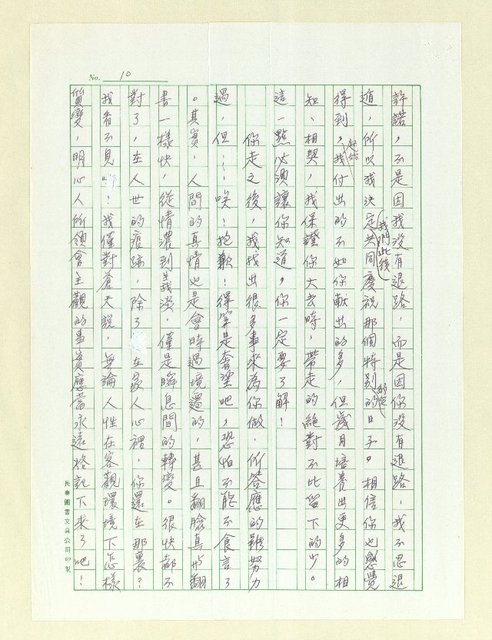 No. 10
許諾，不是因我沒有退路，而是因你沒有退路，我不忍退
道，所以我決定我們此後共同慶祝那個特別的日子。相信你也感覺
得到，我付出的不如你獻出的多，但歲月培養出更多的相
知、相契，我保證你大去時，帶走的絕對不比留下的少。
這一點必須讓你知道，你一定要了解！
你走之後，我找出很多事來為你做，所答應的雖努力
過，但……唉！抱歉！得算是奢望吧，恐怕不能不食言了
。其實，人間的真情也是會時過境遷的，甚且翻臉真如翻
書一樣快，從情濃到情淡，僅是眸息間的轉變。很快都不
對了，在人世的痕跡，除了在家人心裡，你還在那裏？
我看不見你！我僅對蒼天說，無論人性在客觀環境下怎樣
質變，明心人所領會主觀的事實應當永遠烙記下來了吧！
長泰圖書文具公司印製